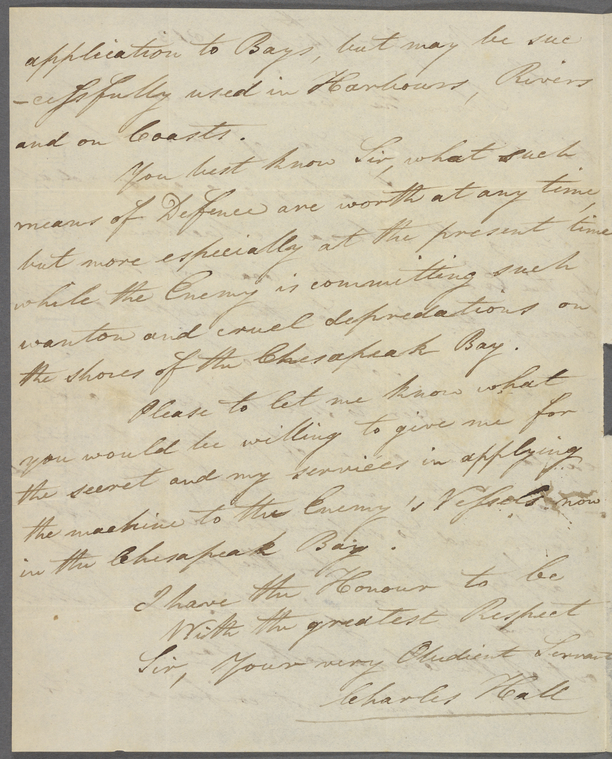 application to Bays, but may be suc
-cessfully used in Harbours, Rivers
and on Coasts.
You best know Sir, what such
means of Deffence are worth at any time,
but more especially at the present time
while the Enemy is committing such
wanton and cruel depredations on
the shores of the Chesapeak Bay.
Please to let me know what
you would be willing to give me for
the secret and my services in applying
the machine to the Enemy's Vessels now
in the Chesapeak Bay.
I have the Honour to be
With the greatest Respect
Sir, Your very Obudient Servant
Charles Hall